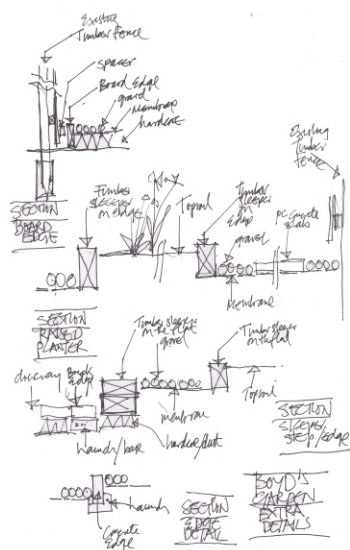 Existing
Timber Fence
spacer
Board Edge
gravel
Membrane
hardcore
SECTION
BOARD
EDGE
Existing
Timber
Fence
Timber
sleeper
on edge
Topsoil
Timber
sleeper
on
Edge
gravel
PC Concrete
slabs
Membrane
SECTION
RAISED
PLANTER
Timber sleeper
on the flat
gravel
Timber sleeper
on the flat
driveway
Brick
Edge
Topsoil
membrane
hardcore/
haunch/base
SECTION
sleeper
step/edge
haunch
Concrete
Edge
SECTION
EDGE
DETAIL
BOYD'S
GARDEN
EXTRA
DETAILS